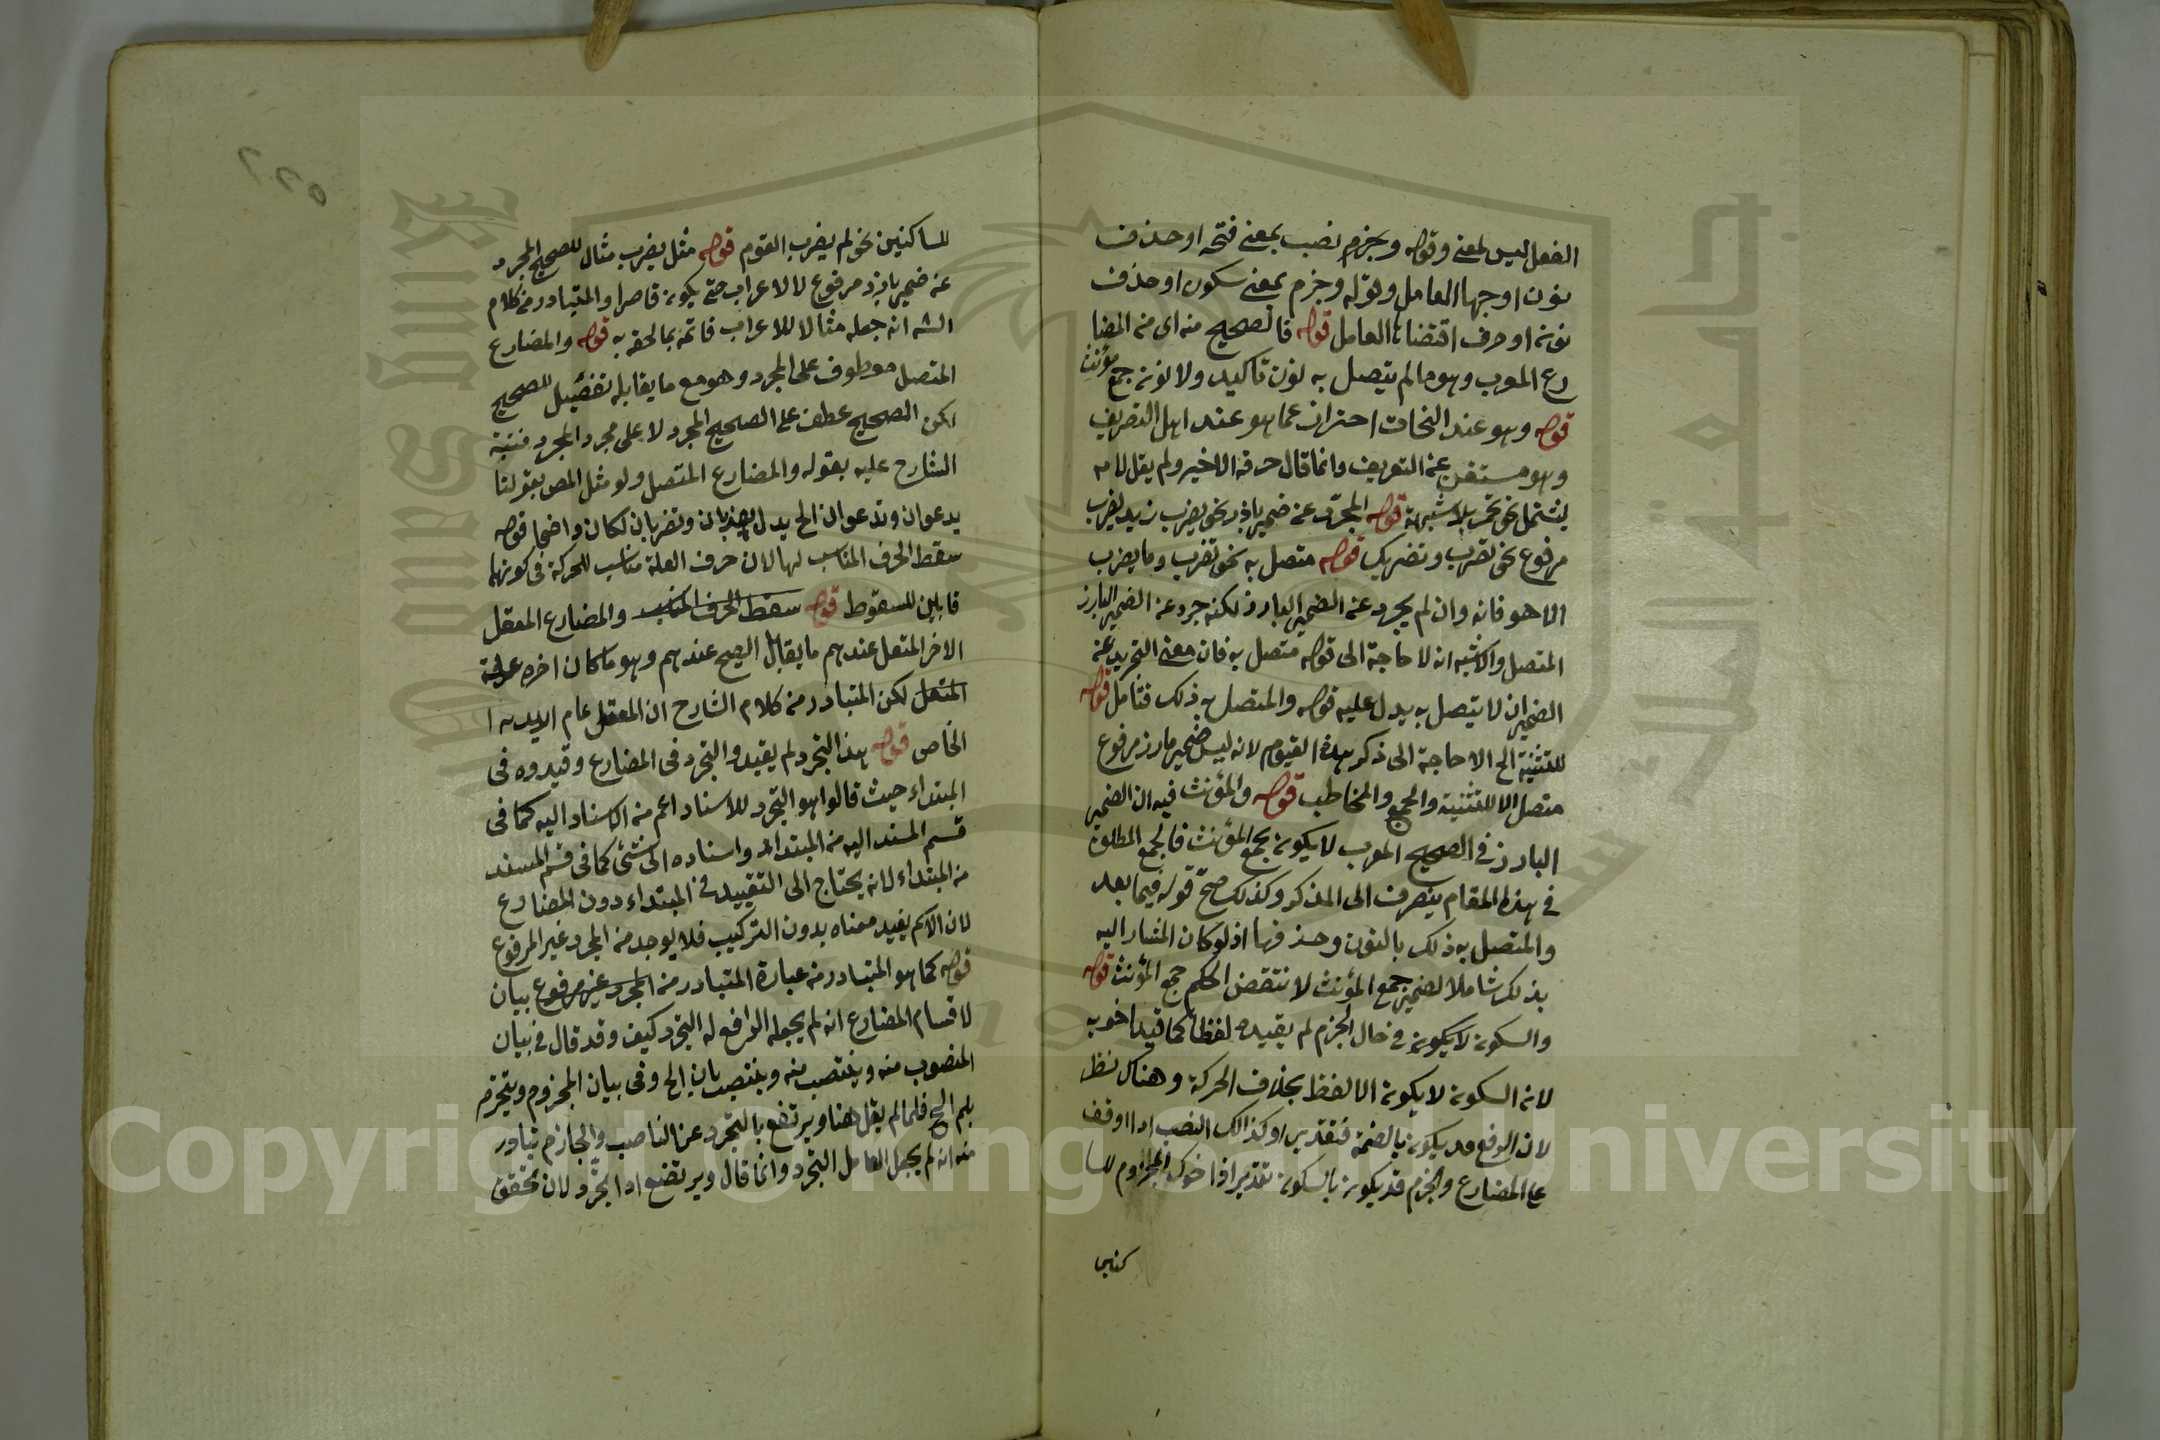 الفعل ليس لمعنى وقوله ويجزم نصب بمعنى فتحه او حذف
نون اوجبها العامل وقوله وجزم بمعنى سكون او حذف
نونه او حرف اقتضاها العامل قوله فالصحيح منه اى من المضا
رع المعرب وهو ما لم يتصل به نون تاكيد ولا نون جمع مؤنث
قوله وهو عند النحات احتراز عما هو عند اهل التصريف
وهو مستغن عن التعريف وانما قال حرفه الاخير ولم يقل لامه
ليشتمل نحو قوله المجرد عن ضمير بارز نحو يضرب زيد يضرب
مرفوع نحو تضرب وتضربك قوله متصل به نحو تضرب وما يضرب
الا هو فانه وان لم يجرد عن الضمير البارز لكنه جرد عن الضمير البارز
المتصل والاشبه انه لا حاجة الى قوله متصل به فان معنى التجريد عن
الضمير ان لا يتصل به يدل عليه قوله والمتصل به ذلك فتأمل قوله
للتثنية الخ لا حاجة الى ذكر هذه القيوم لانه ليس ضمير بارز مرفوع
متصل الا للتثنية والجمع والمخاطب قوله والمؤنث فيه ان الضمير
البارز في الصحيح المعرب لا يكون بجمع المؤنث فالجمع المطلق
في هذا المقام ينصرف الى المذكر وكذلك صح قوله فيما بعد
والمتصل به ذلك بالنون وحذفها اذ لو كان المشار اليه
بذلك شاملا لضمير جمع المؤنث لانتقض الحكم جمع المؤنث قوله
والسكون لا يكون في حال الجزم لم يقيده لفظا كما قيد اخويه
لانه السكون لا يكون الا لفظ بحذف الحركة وهناك نظر
لان الرفع قد يكون بالضمة فتقديرا وكذلك النصب اذا وقف
على المضارع والجزم قد يكون بالسكون تقديرا فاخوك المجزوم للسا
كنين
٢٢٥
للساكنين نحو لم يضرب القوم قوله مثل يضرب مثال للصحيح المجرد
عن ضمير بارز مرفوع لا لاعراب حتى يكون قاصرا والمتبادر من كلام
الشه انه جعله مثالا للاعراب فاتمه بما لحقه به قوله والمضارع
المتصل معطوف على المجرد وهو مع ما يقابله تفضيل للصحيح
لكن الصحيح عطف على الصحيح المجرد لا على مجرد المجرد فنبه
الشارح عليه بقوله والمضارع المتصل ولو مثل المص بقولنا
يدعوان وتدعوان الخ بدل يضربان وتضربان لكان واضحا قوله
سقط الحرف المناسب لها لان حرف العلة مناسب للحركة في كونها
قابلين للسقوط قوله سقط الحرف المناسب والمضارع المعتل
الاخر المتعل عندهم ما يقابل الصح عندهم وهو ما كان اخره علة
المتعل لكن المتبادر من كلام الشارح ان المعتل عام اريد به ا
الخاص قوله هذا التجرد لم يقيدوا التجرد في المضارع وقيدوه في
المبتداء حيث قالوا هو التجرد للاسناد اعم من الاسناد اليه كما في
قسم المسند اليه من المبتداء واسناده الى شئ كما في قسم المسند
من المبتداء لانه يحتاج الى التقييد في المبتداء دون المضارع
لان الاسم يفيد معناه بدون التركيب فلا يوجد منه المجرد غير المرفوع
قوله كما هو المتبادر من عبارة المتبادر من المجرد عن مرفوع بيان
لاقسام المضارع انه لم يجعله الرافع له التجرد كيف وقد قال في بيان
المنصوب منه وينتصب منه وينتصب بان الخ وفي بيان المجزوم وينجزم
بلم الخ فلما لم يقل هنا ويرتفع بالتجرد عن الناصب والجازم تبادر
منه انه لم يجعل العامل التجرد وانما قال ويرتفع اذا تجرد لان تحقق
Copyright © King Saud University